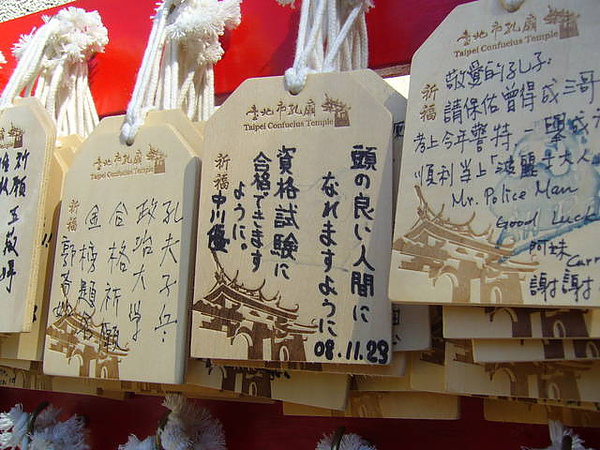 臺北市孔廟
Taipei Confucius Temple
祈福
孔夫子
政治大學
合格祈願
金榜題名
臺北市孔廟
Taipei Confucius Temple
祈福
頭の良い人間に
なれますように
資格試験に
合格できます
ように。
中川優
08.11.23
臺北市孔廟
Taipei Confucius Temple
祈福
敬愛的孔子:
請保佑曾得成三哥
考上今年警特,一舉成
順利當上「波麗士大人
Mr. Police Man
Good Luck
阿妹
謝謝
祈福